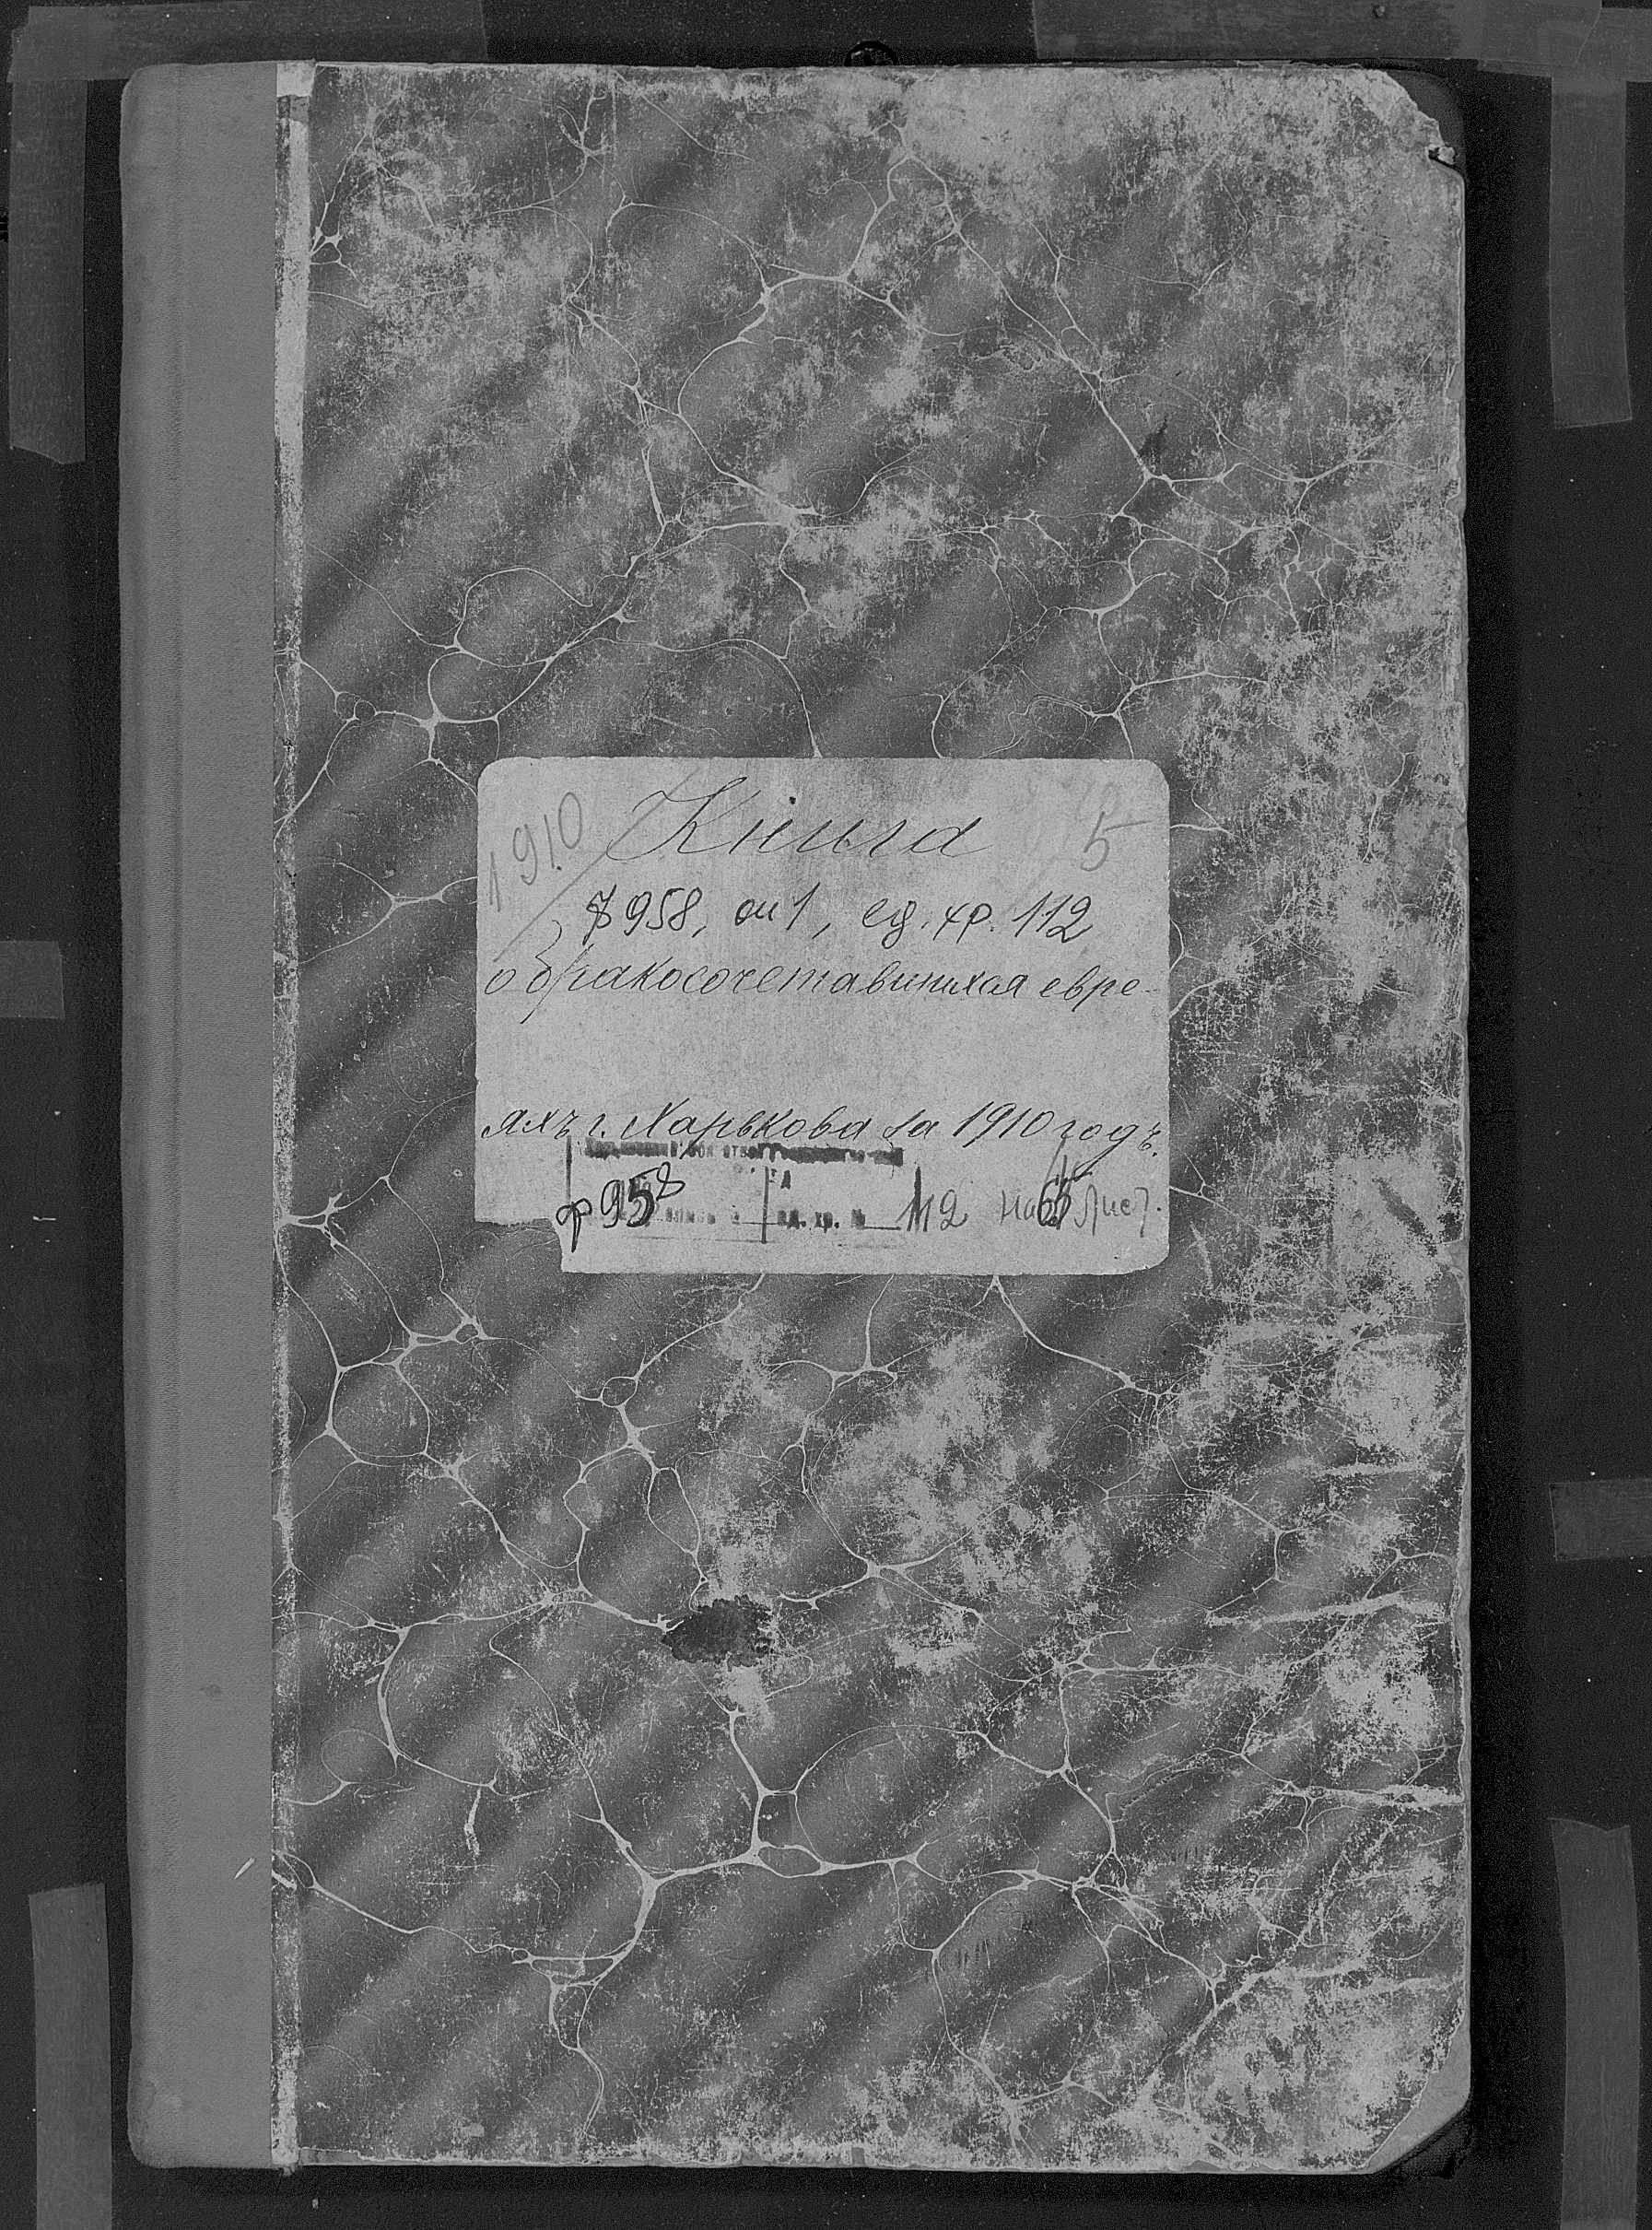 1910
Книга
5
ф 958, оп 1, ед. хр. 112
о бракосочетавшихся евре-
яхъ г. Харькова за 1910 годъ.
ф 958 ед. хр. № 112 на Лист.